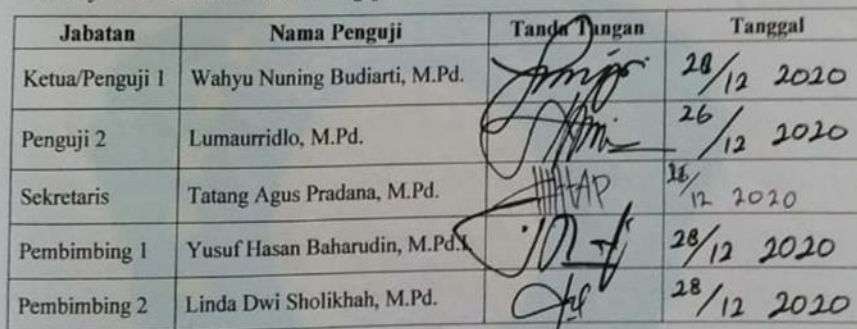 Jabatan Nama Penguji Tanda Tangan Tanggal
Ketua/Penguji 1 Wahyu Nuning Budiarti, M.Pd. 28/12 2020
Penguji 2 Lumaurridlo, M.Pd. 26/12 2020
Sekretaris Tatang Agus Pradana, M.Pd. /12 2020
Pembimbing 1 Yusuf Hasan Baharudin, M.Pd.I 28/12 2020
Pembimbing 2 Linda Dwi Sholikhah, M.Pd. 28/12 2020